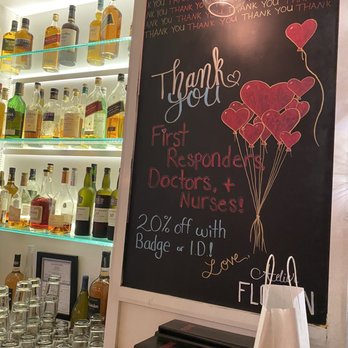 THANK YOU THANK YOU THANK YOU
THANK YOU THANK YOU THANK YOU THANK YOU
Thank
you
First
Responders,
Doctors, +
Nurses!
20% off with
Badge or I.D!
Love,
Atelier